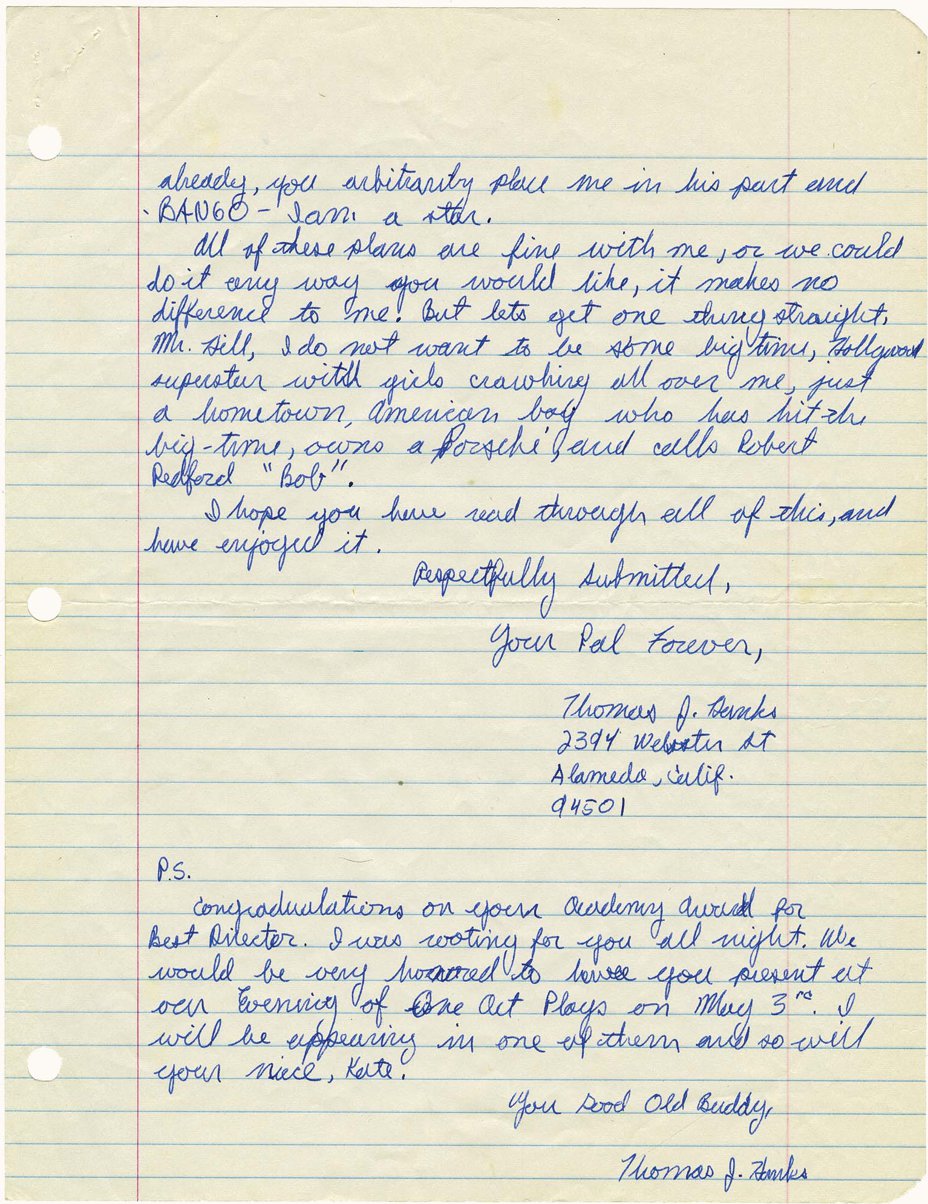 already, you arbitrarity place me in his part and
BANGO - I am a star.
All of these plans are fine with me, or we could
do it any way you would like, it makes no
difference to me! But lets get one thing straight,
Mr. Hill, I do not want to be some big time, Hollywood
superstar with girls crawling all over me, just
a hometown, American boy who has hit the
big-time, owns a Porsche, and calls Robert
Redford "Bob".
I hope you have read through all of this, and
have enjoyed it.
Respectfully Submitted,
Your Pal Forever,
Thomas J. Hanks
2394 Webster St
Alameda, Calif.
94501
P.S.
Congradualations on your Academy Award for
Best Director. I was rooting for you all night. We
would be very honored to have you present at
our Evening of One Act Plays on May 3rd. I
will be appearing in one of them and so will
your niece, Kate.
You Good Old Buddy,
Thomas J. Hanks